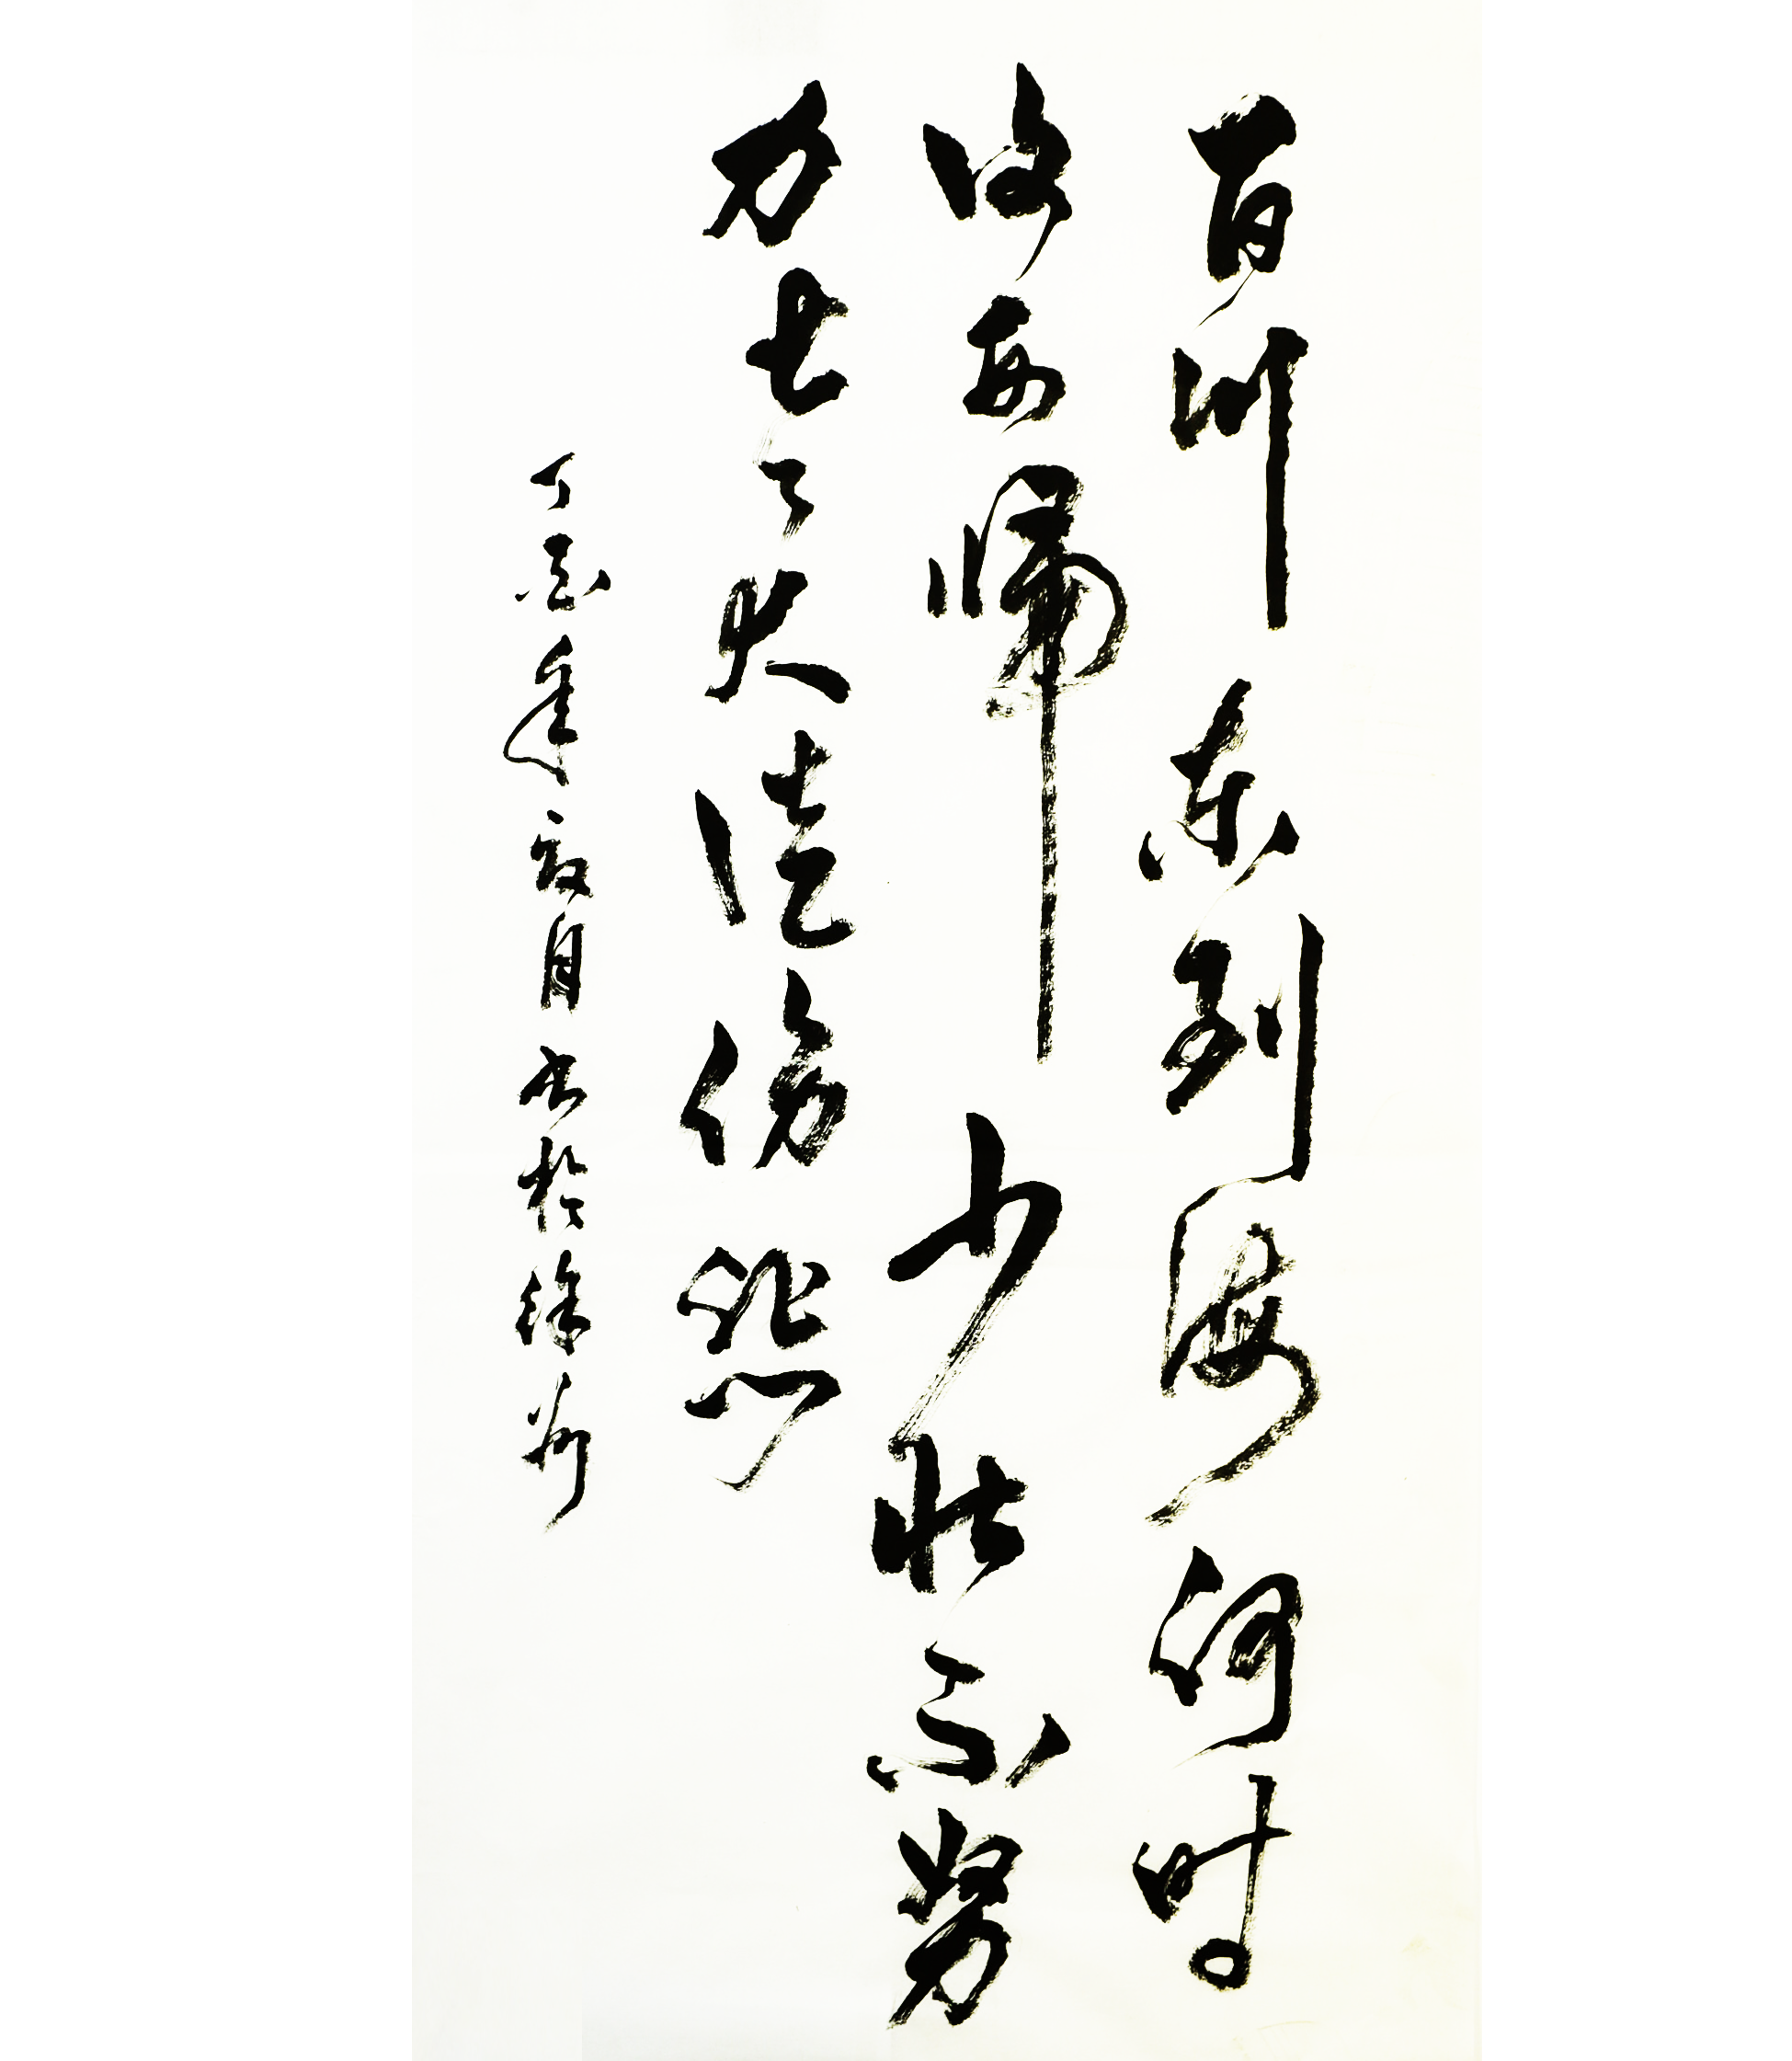 百川东到海何时
復西归少壮不努
力老大徒伤悲
丁酉年夏月书於徐州